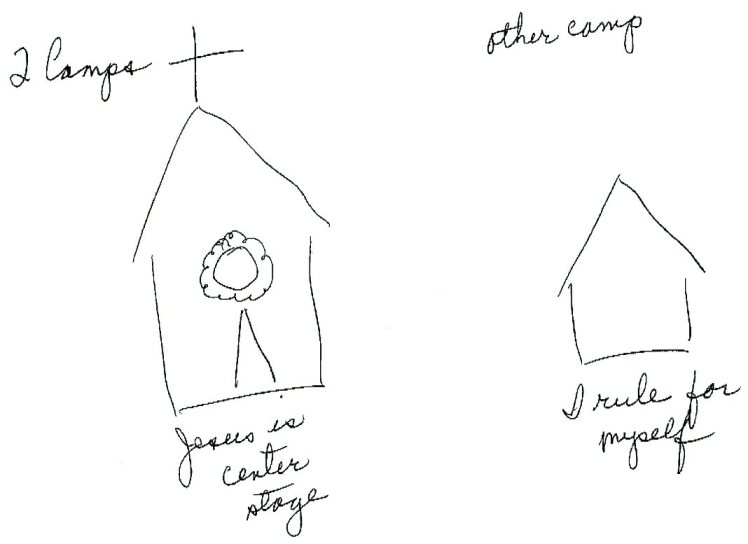 2 Camps
other camp
Jesus is
center
stage
I rule for
myself